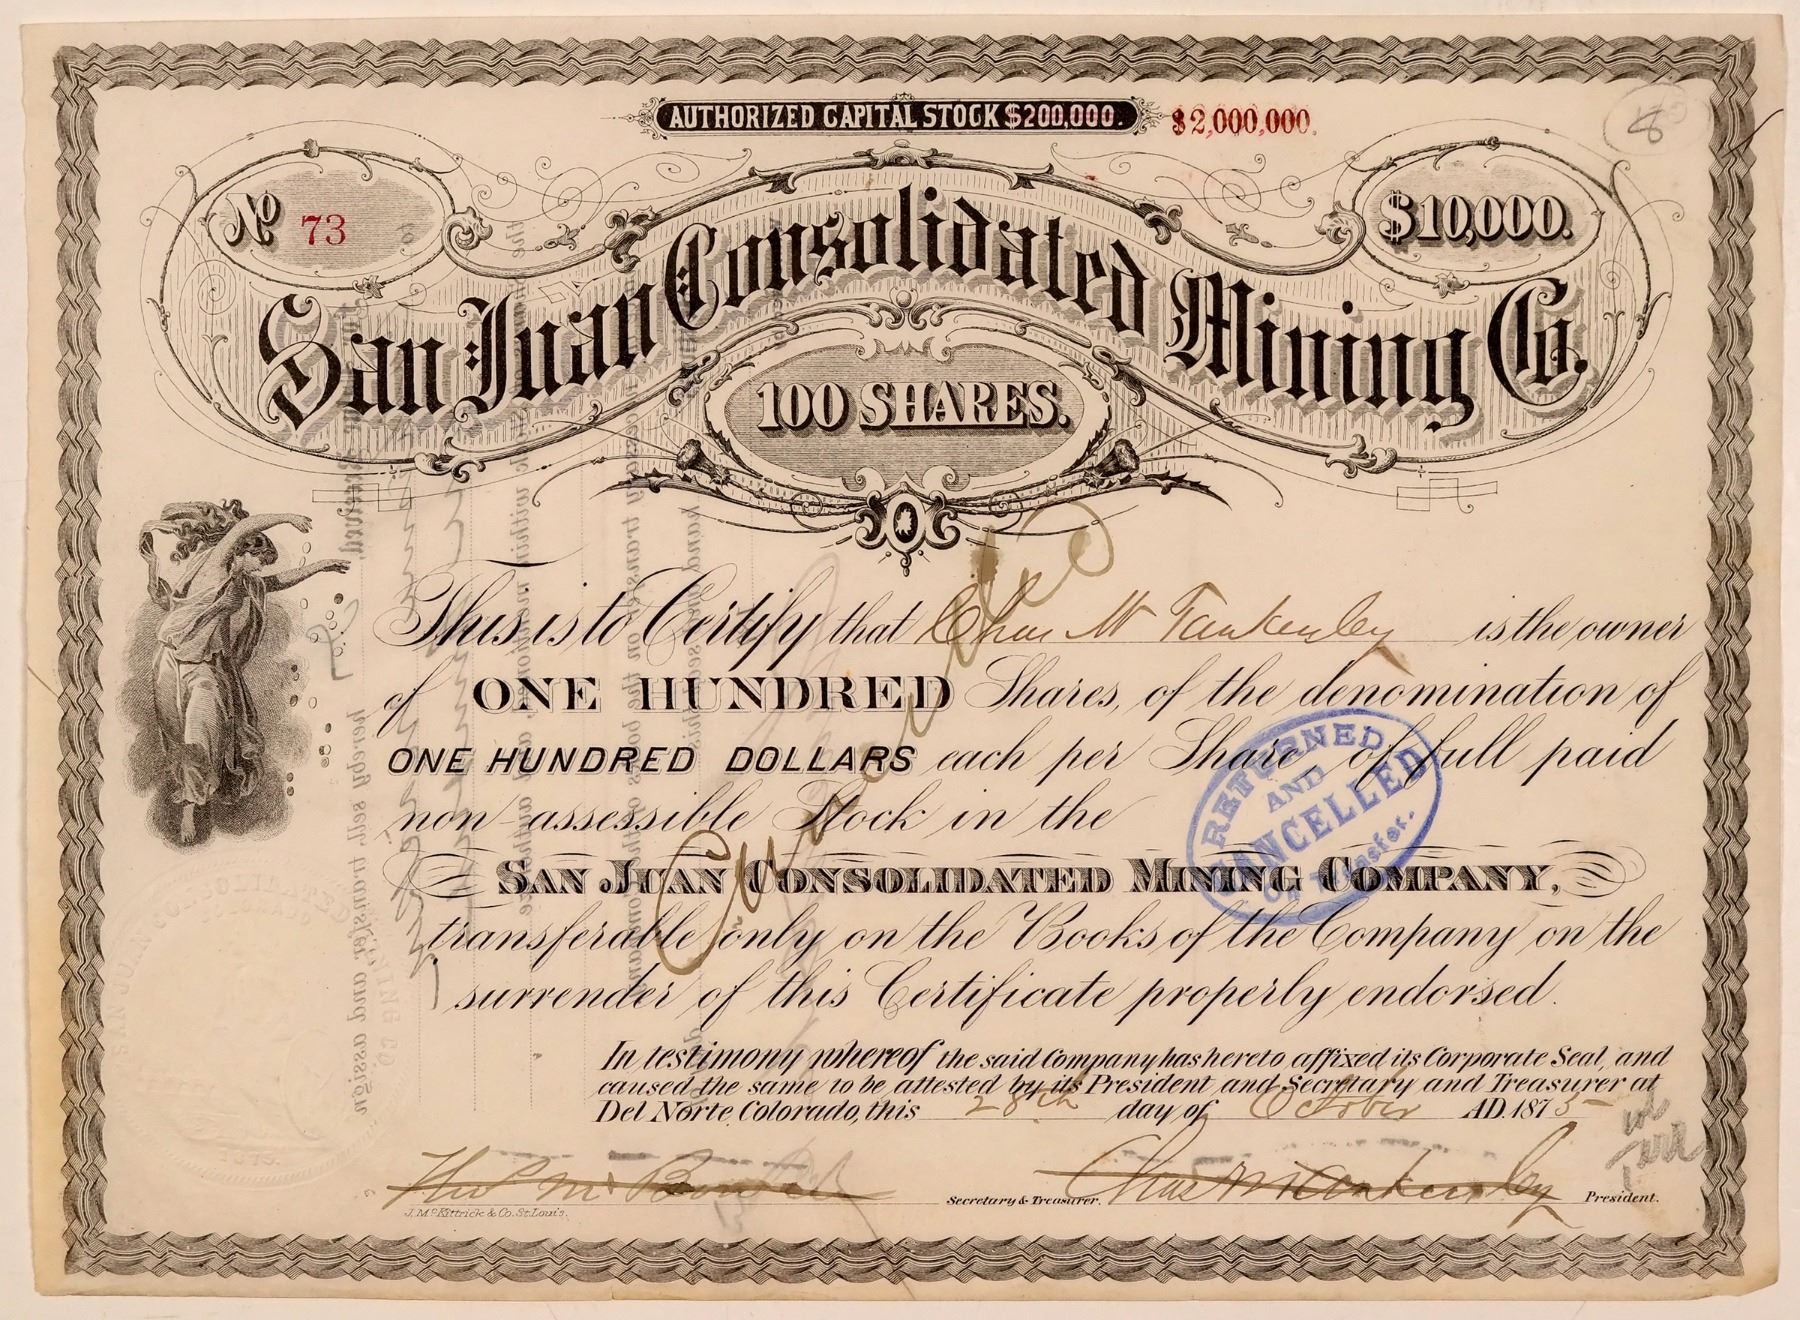 AUTHORIZED CAPITAL STOCK $200,000. $2,000,000.
No 73
$10,000.
San Juan Consolidated Mining Co.
100 SHARES.
This is to Certify that Chas M Tankersley is the owner
of ONE HUNDRED Shares, of the denomination of
ONE HUNDRED DOLLARS each per Share of full paid
non-assessible Stock in the
SAN JUAN CONSOLIDATED MINING COMPANY,
transferable only on the Books of the Company on the
surrender of this Certificate properly endorsed.
RETURNED
AND
CANCELLED
On Transfer.
Cancelled
In testimony whereof the said Company has hereto affixed its Corporate Seal, and
caused the same to be attested by its President and Secretary and Treasurer at
Del Norte, Colorado, this 28th day of October A.D. 1875
Secretary & Treasurer. Chas M Tankersley President.
J. McKittrick & Co. St. Louis.
SAN JUAN CONSOLIDATED MINING CO
1875.